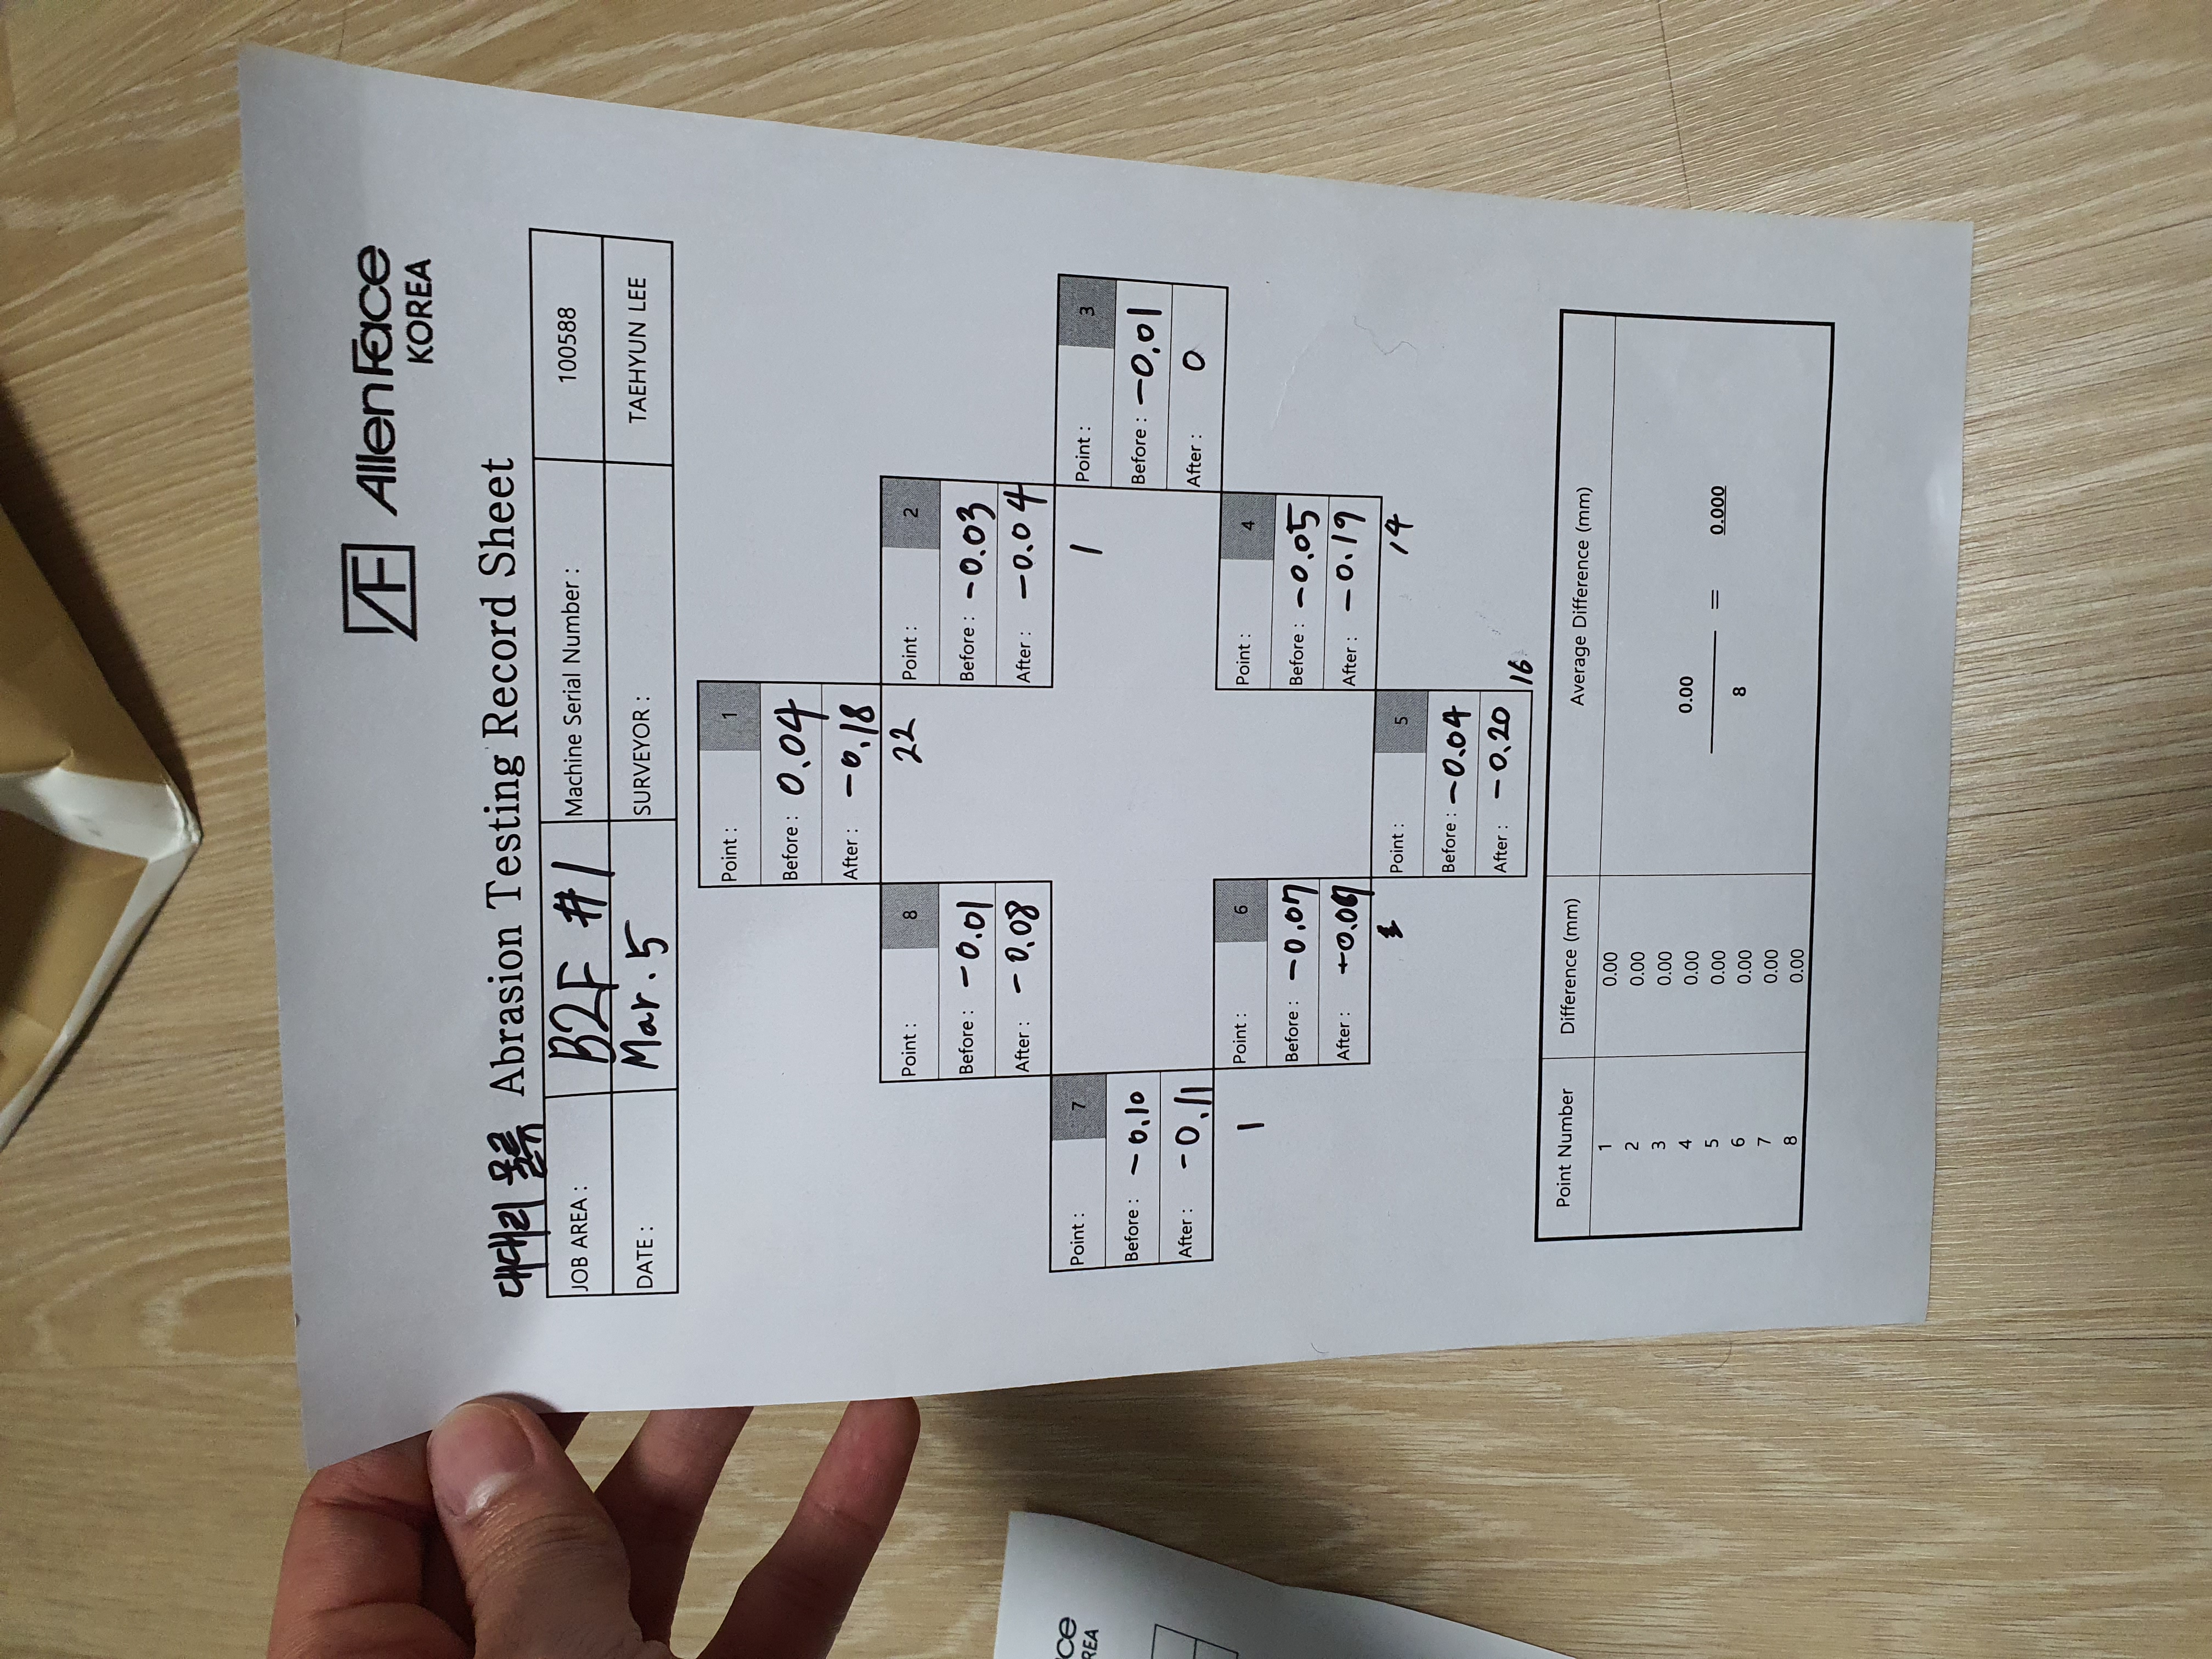 AF Allen Face
KOREA
대대리 물류 Abrasion Testing Record Sheet
JOB AREA : B2F #1 Machine Serial Number : 100588
DATE : Mar. 5 SURVEYOR : TAEHYUN LEE
Point : 1
Before : 0.04
After : -0.18
22
Point : 8
Before : -0.01
After : -0.08
Point : 2
Before : -0.03
After : -0.04
1
Point : 7
Before : -0.10
After : -0.11
1
Point : 3
Before : -0.01
After : 0
Point : 6
Before : -0.07
After :
Point : 4
Before : -0.05
After : -0.19
14
Point : 5
Before : -0.04
After : -0.20
16
Point Number Difference (mm) Average Difference (mm)
1 0.00
2 0.00
3 0.00
4 0.00
5 0.00
6 0.00
7 0.00
8 0.00
0.00
8
= 0.000
ce
REA